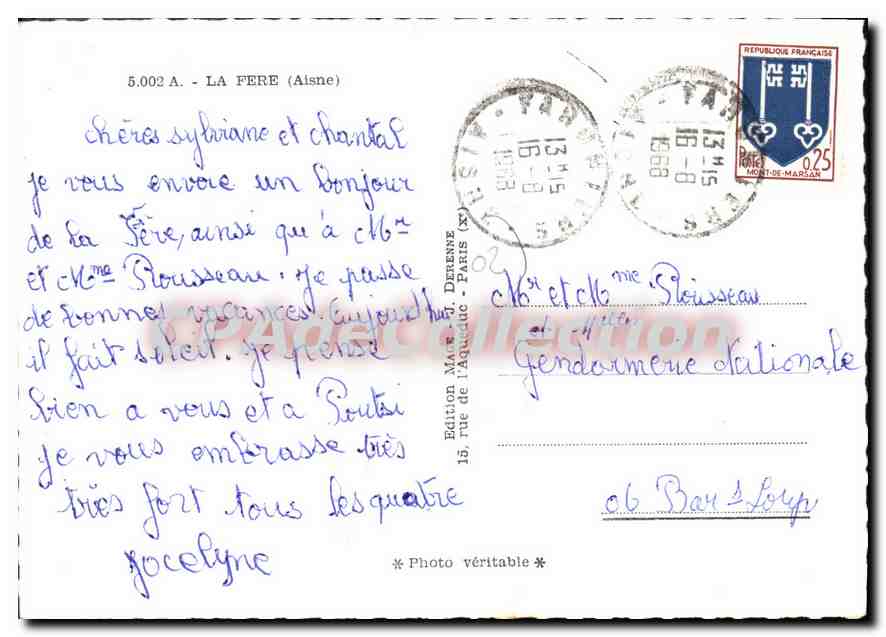 5.002 A. - LA FERE (Aisne)
chères sylviane et chantal
je vous envoie un bonjour
de la Fère, ainsi qu'à Mr
et Mme Rousseau. Je passe
de bonnes vacances. Aujourd'hui
il fait soleil. Je pense
bien a vous et a Poutsi
je vous embrasse très
très fort tous les quatre
Jocelyne
Edition Mage, J. DERENNE
15, rue de l'Aqueduc - PARIS (Xe)
* Photo véritable *
AISNE
13H15
16-8
1968
13H15
16-8
1968
REPUBLIQUE FRANÇAISE
POSTES
0,25
MONT-DE-MARSAN
02
Mr et Mme Rousseau
et Melles
Gendarmerie Nationale
06 Bar s Loup
CPAdeCollection